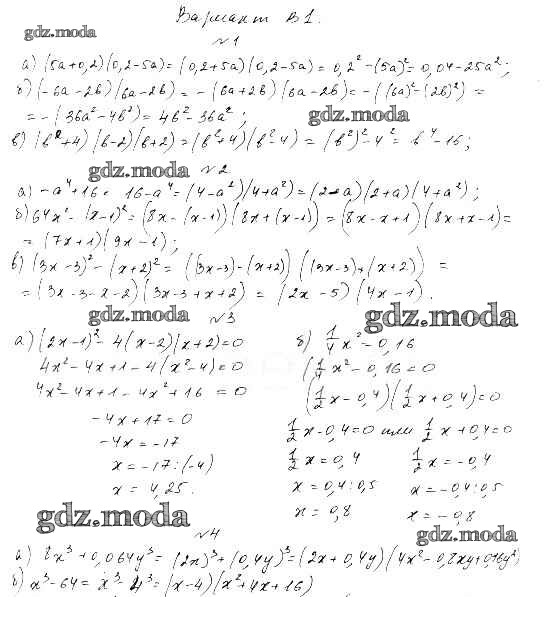 Вариант В1.
gdz.moda
№1
а) (5a+0,2)(0,2-5a)=(0,2+5a)(0,2-5a)=0,2²-(5a)²=0,04-25a²;
б) (-6a-2b)(6a-2b)=-(6a+2b)(6a-2b)=-((6a)²-(2b)²)=
=-(36a²-4b²)=4b²-36a²;
gdz.moda
в) (b²+4)(b-2)(b+2)=(b²+4)(b²-4)=(b²)²-4²=b⁴-16;
gdz.moda №2
а) -a⁴+16=16-a⁴=(4-a²)(4+a²)=(2-a)(2+a)(4+a²);
б) 64x²-(x-1)²=(8x-(x-1))(8x+(x-1))=(8x-x+1)(8x+x-1)=
=(7x+1)(9x-1);
в) (3x-3)²-(x+2)²=((3x-3)-(x+2))((3x-3)+(x+2))=
=(3x-3-x-2)(3x-3+x+2)=(2x-5)(4x-1).
gdz.moda №3 gdz.moda
а) (2x-1)²-4(x-2)(x+2)=0
4x²-4x+1-4(x²-4)=0
4x²-4x+1-4x²+16=0
-4x+17=0
-4x=-17
x=-17:(-4)
x=4,25.
б) 1/4x²-0,16
(1/4x²-0,16=0
(1/2x-0,4)(1/2x+0,4)=0
1/2x-0,4=0 или 1/2x+0,4=0
1/2x=0,4 1/2x=-0,4
x=0,4:0,5 x=-0,4:0,5
x=0,8 x=-0,8
gdz.moda
№4
gdz.moda
а) 8x³+0,064y³=(2x)³+(0,4y)³=(2x+0,4y)(4x²-0,8xy+0,16y²)
б) x³-64=x³-4³=(x-4)(x²+4x+16)